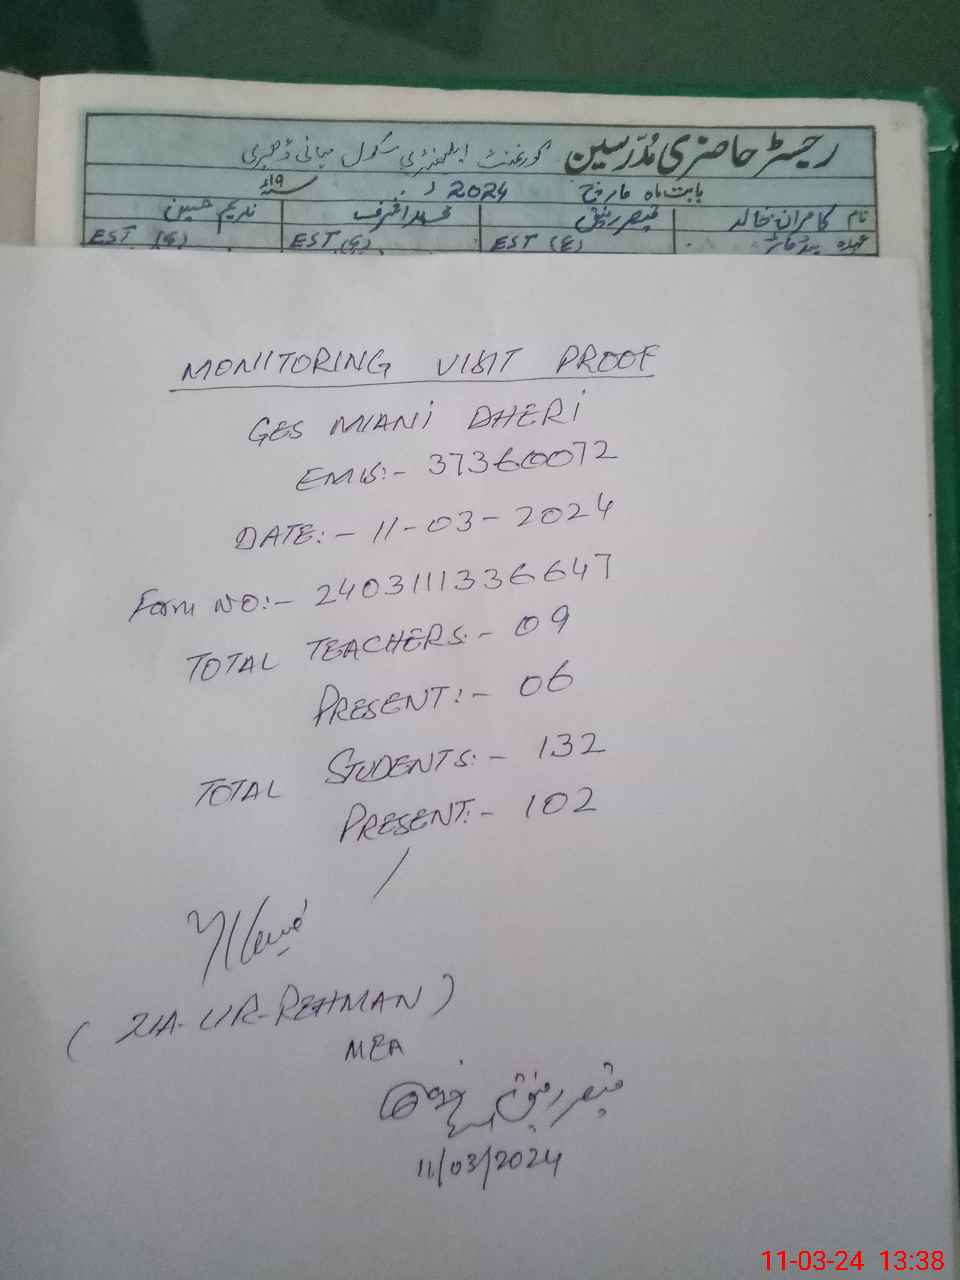 رجسٹر حاضری مدرسین گورنمنٹ ایلمنٹری سکول میانی ڈھیری
بابت ماہ مارچ 2024ء سنہ ۱۹ء
نام کامران خالد قیصر رفیق محمد اشرف ندیم حسین
عہدہ ہیڈ ماسٹر EST (ع) EST (ع) EST (ع)
MONITORING VISIT PROOF
GES MIANI DHERI
EMIS:- 37360072
DATE:- 11-03-2024
Form NO:- 2403111336647
TOTAL TEACHERS:- 09
PRESENT:- 06
TOTAL STUDENTS:- 132
PRESENT:- 102
(ZIA-UR-REHMAN)
MEA
قیصر رفیق
11/03/2024
11-03-24 13:38